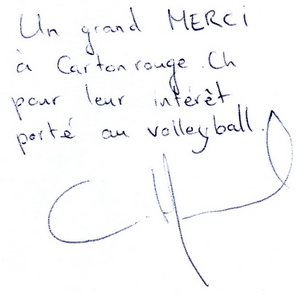 Un grand MERCI
à Cartonrouge.Ch
pour leur intérêt
porté au volleyball.